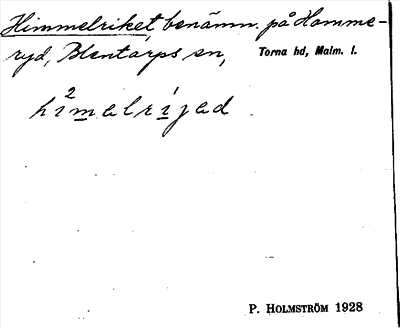 Himmelriket, benämn. på Homme-
ryd, Blentarps sn, Torna hd, Malm. l.
hi²melri̍ged
P. HOLMSTRÖM 1928